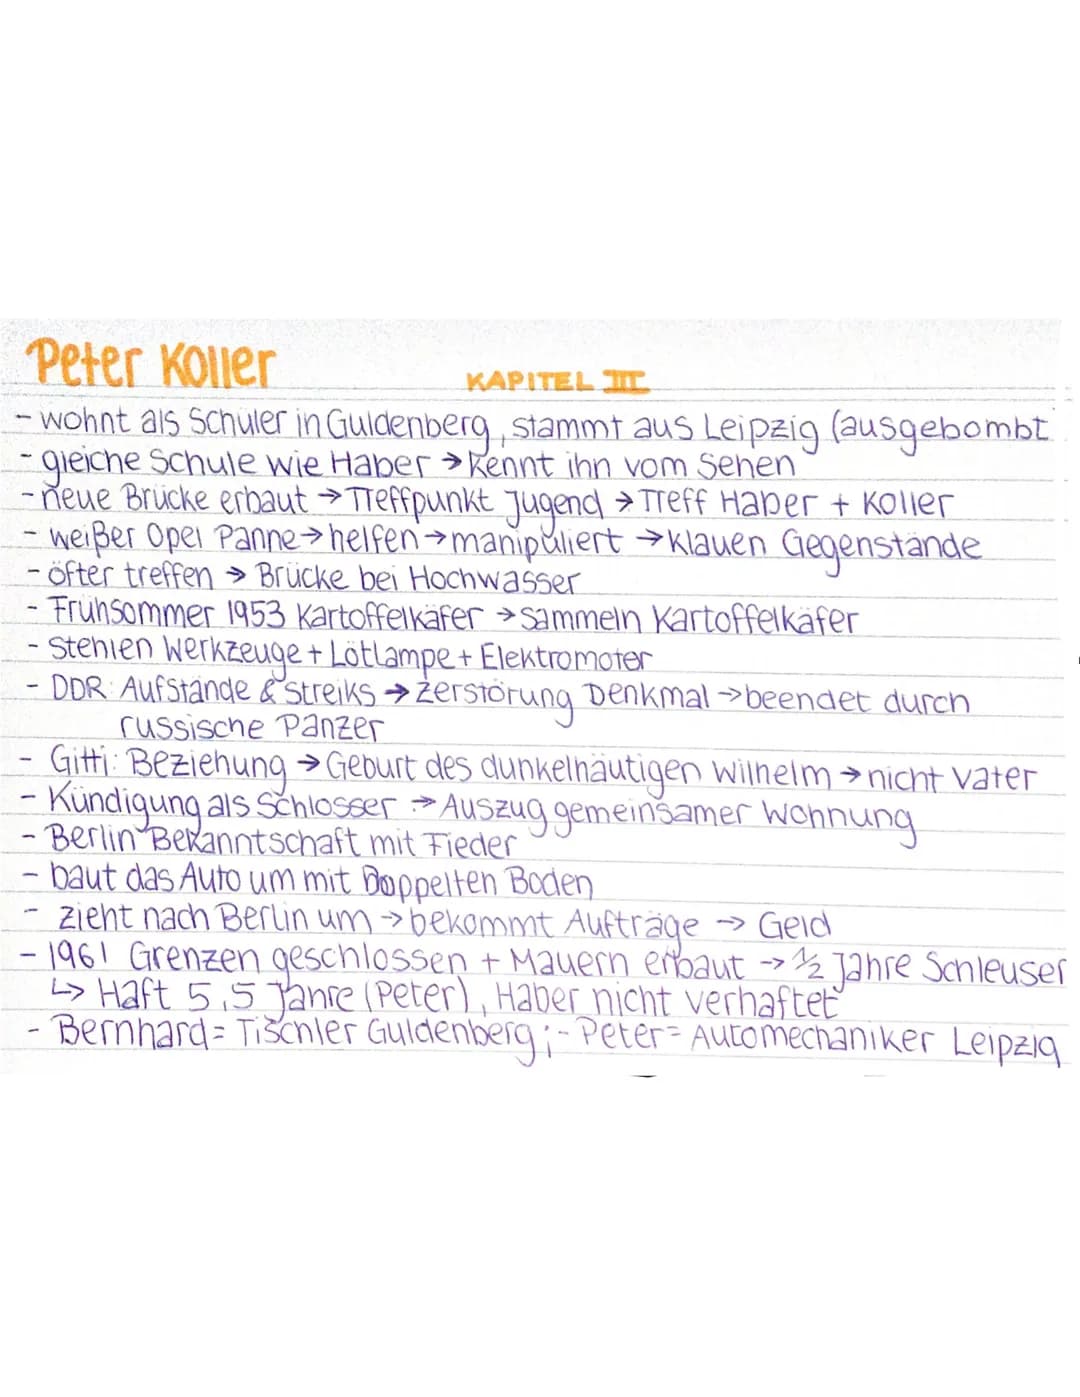 Peter Koller
KAPITEL III
- wohnt als Schüler in Guldenberg, stammt aus Leipzig (ausgebombt
- gleiche Schule wie Haber → Kennt ihn vom Sehen
- neue Brücke erbaut → Treffpunkt Jugend → Treff Haber + Koller
- weißer Opel Panne → helfen → manipuliert → klauen Gegenstände
- öfter treffen → Brücke bei Hochwasser
- Frühsommer 1953 Kartoffelkäfer → sammeln Kartoffelkäfer
- stehlen Werkzeuge + Lötlampe + Elektromoter
- DDR: Aufstände & Streiks → Zerstörung Denkmal → beendet durch
russische Panzer
- Gitti: Beziehung → Geburt des dunkelhäutigen Wilhelm → nicht Vater
- Kündigung als Schlosser → Auszug gemeinsamer Wohnung
- Berlin Bekanntschaft mit Fieder
- baut das Auto um mit Doppelten Boden
- zieht nach Berlin um → bekommt Aufträge → Geld
- 1961 Grenzen geschlossen + Mauern erbaut → ½ Jahre Schleuser
↳ Haft 5,5 Jahre (Peter), Haber nicht verhaftet
- Bernhard = Tischler Guldenberg ; - Peter = Automechaniker Leipzig